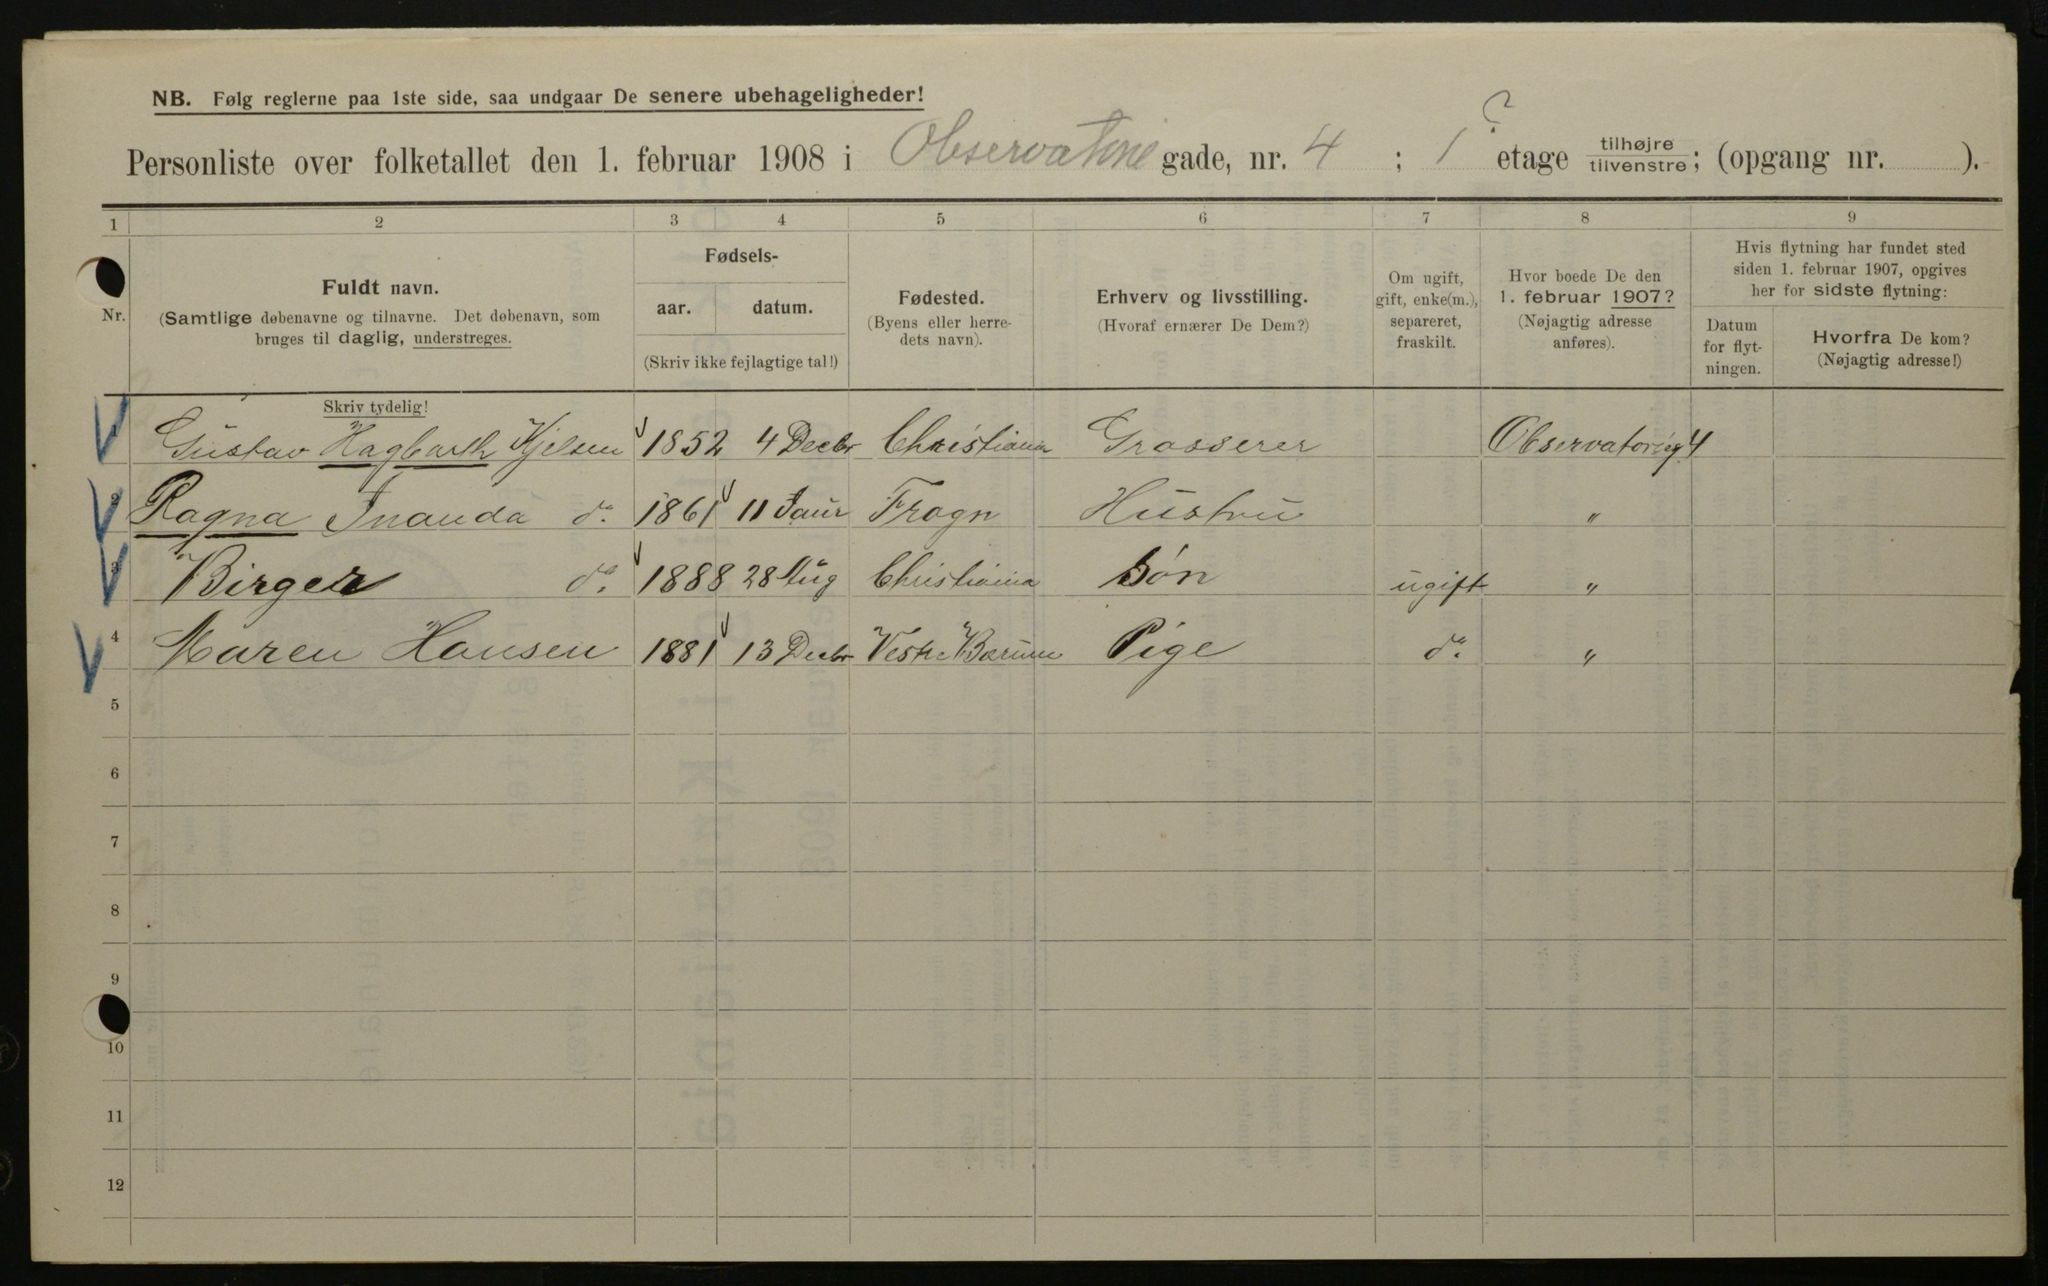 NB. Følg reglerne paa 1ste side, saa undgaar De senere ubehageligheder!
Personliste over folketallet den 1. februar 1908 i Observatorie gade, nr. 4 ; 1 ? etage tilhøjre/tilvenstre; (opgang nr. ).
1 2 3 4 5 6 7 8 9
Nr.
Fuldt navn.
(Samtlige døbenavne og tilnavne. Det døbenavn, som
bruges til daglig, understreges.
Fødsels-
aar. datum.
(Skriv ikke fejlagtige tal!)
Fødested.
(Byens eller herre-
dets navn).
Erhverv og livsstilling.
(Hvoraf ernærer De Dem?)
Om ugift,
gift, enke(m.),
separeret,
fraskilt.
Hvor boede De den
1. februar 1907?
(Nøjagtig adresse
anføres).
Hvis flytning har fundet sted
siden 1. februar 1907, opgives
her for sidste flytning:
Datum
for flyt-
ningen.
Hvorfra De kom?
(Nøjagtig adresse!)
Skriv tydelig!
Gustav Hagbarth Kjelsen 1852 4 Decbr Christiania Grosserer Observatorieg 4
2 Ragna Inanda do. 1861 11 Janr Frogn Hustru "
3 Birger do. 1888 28 Aug Christiania Søn ugift "
4 Maren Hansen 1881 13 Decbr Vestre Bærum Pige do. "
5
6
7
8
9
10
11
12